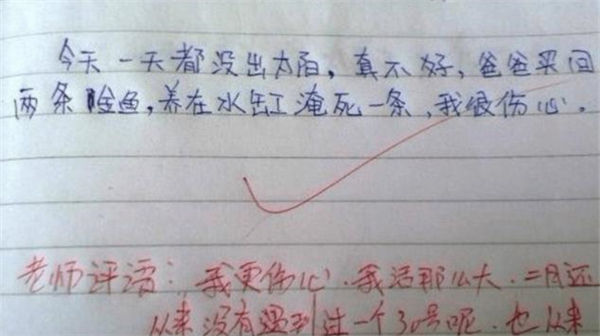 今天一天都没出太阳，真不好，爸爸买回
两条金鱼，养在水缸淹死一条，我很伤心。
老师评语：我更伤心．我活那么大．二月还
从来没有遇到过一个30号呢．也从来